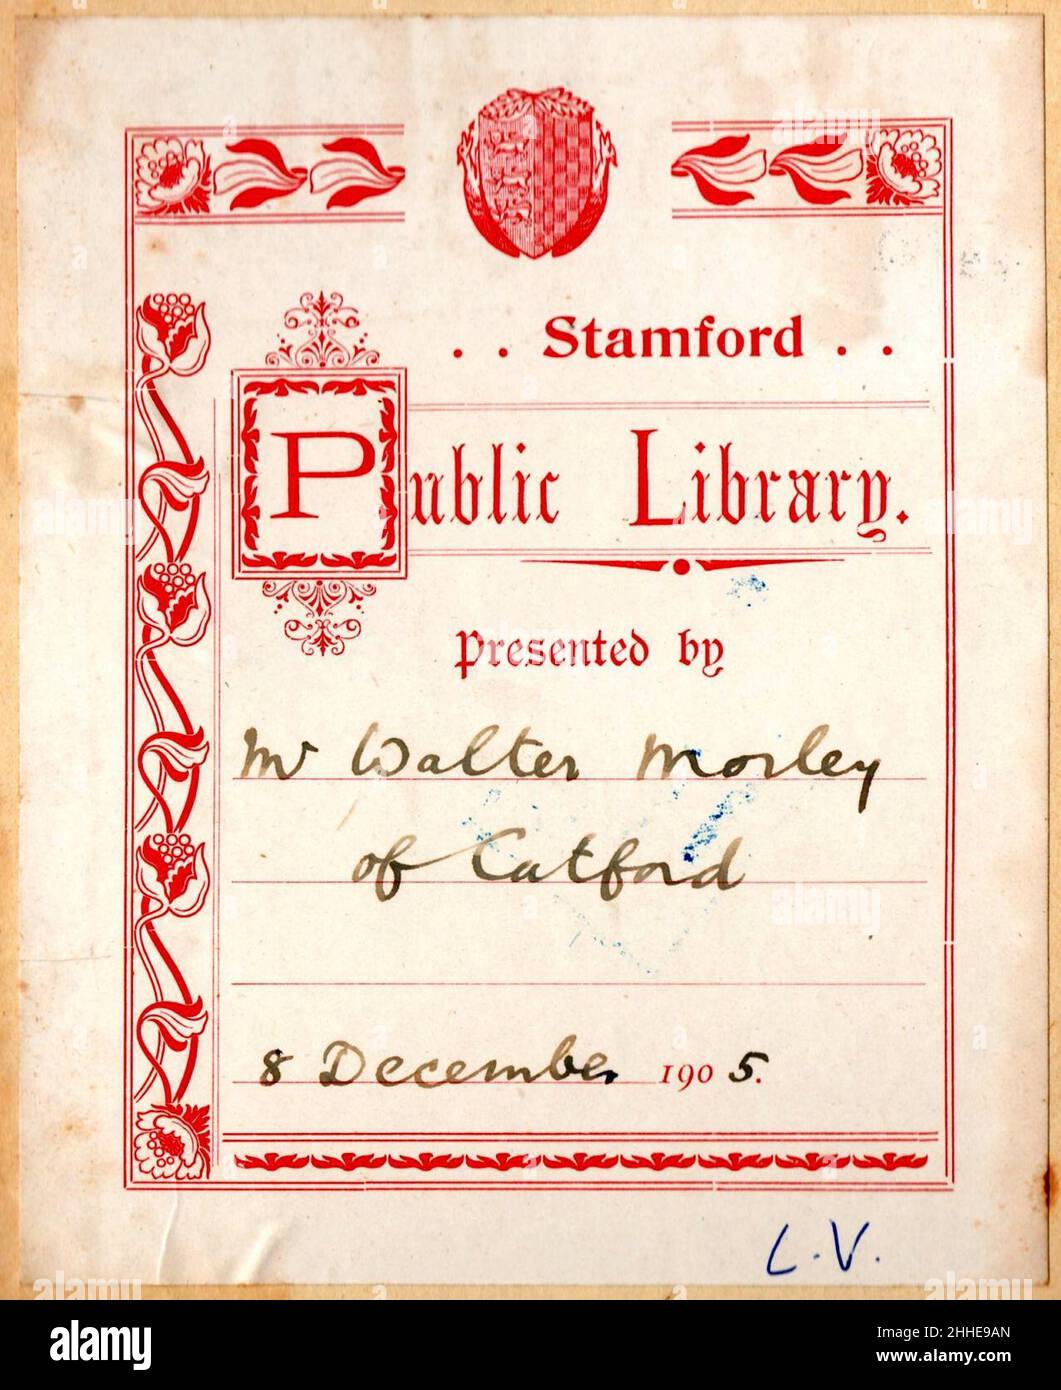 . . Stamford . .
Public Library.
Presented by
Mr Walter Morley
of Catford
8 December 1905.
L.V.
alamy
Image ID: 2HHE9AN
www.alamy.com